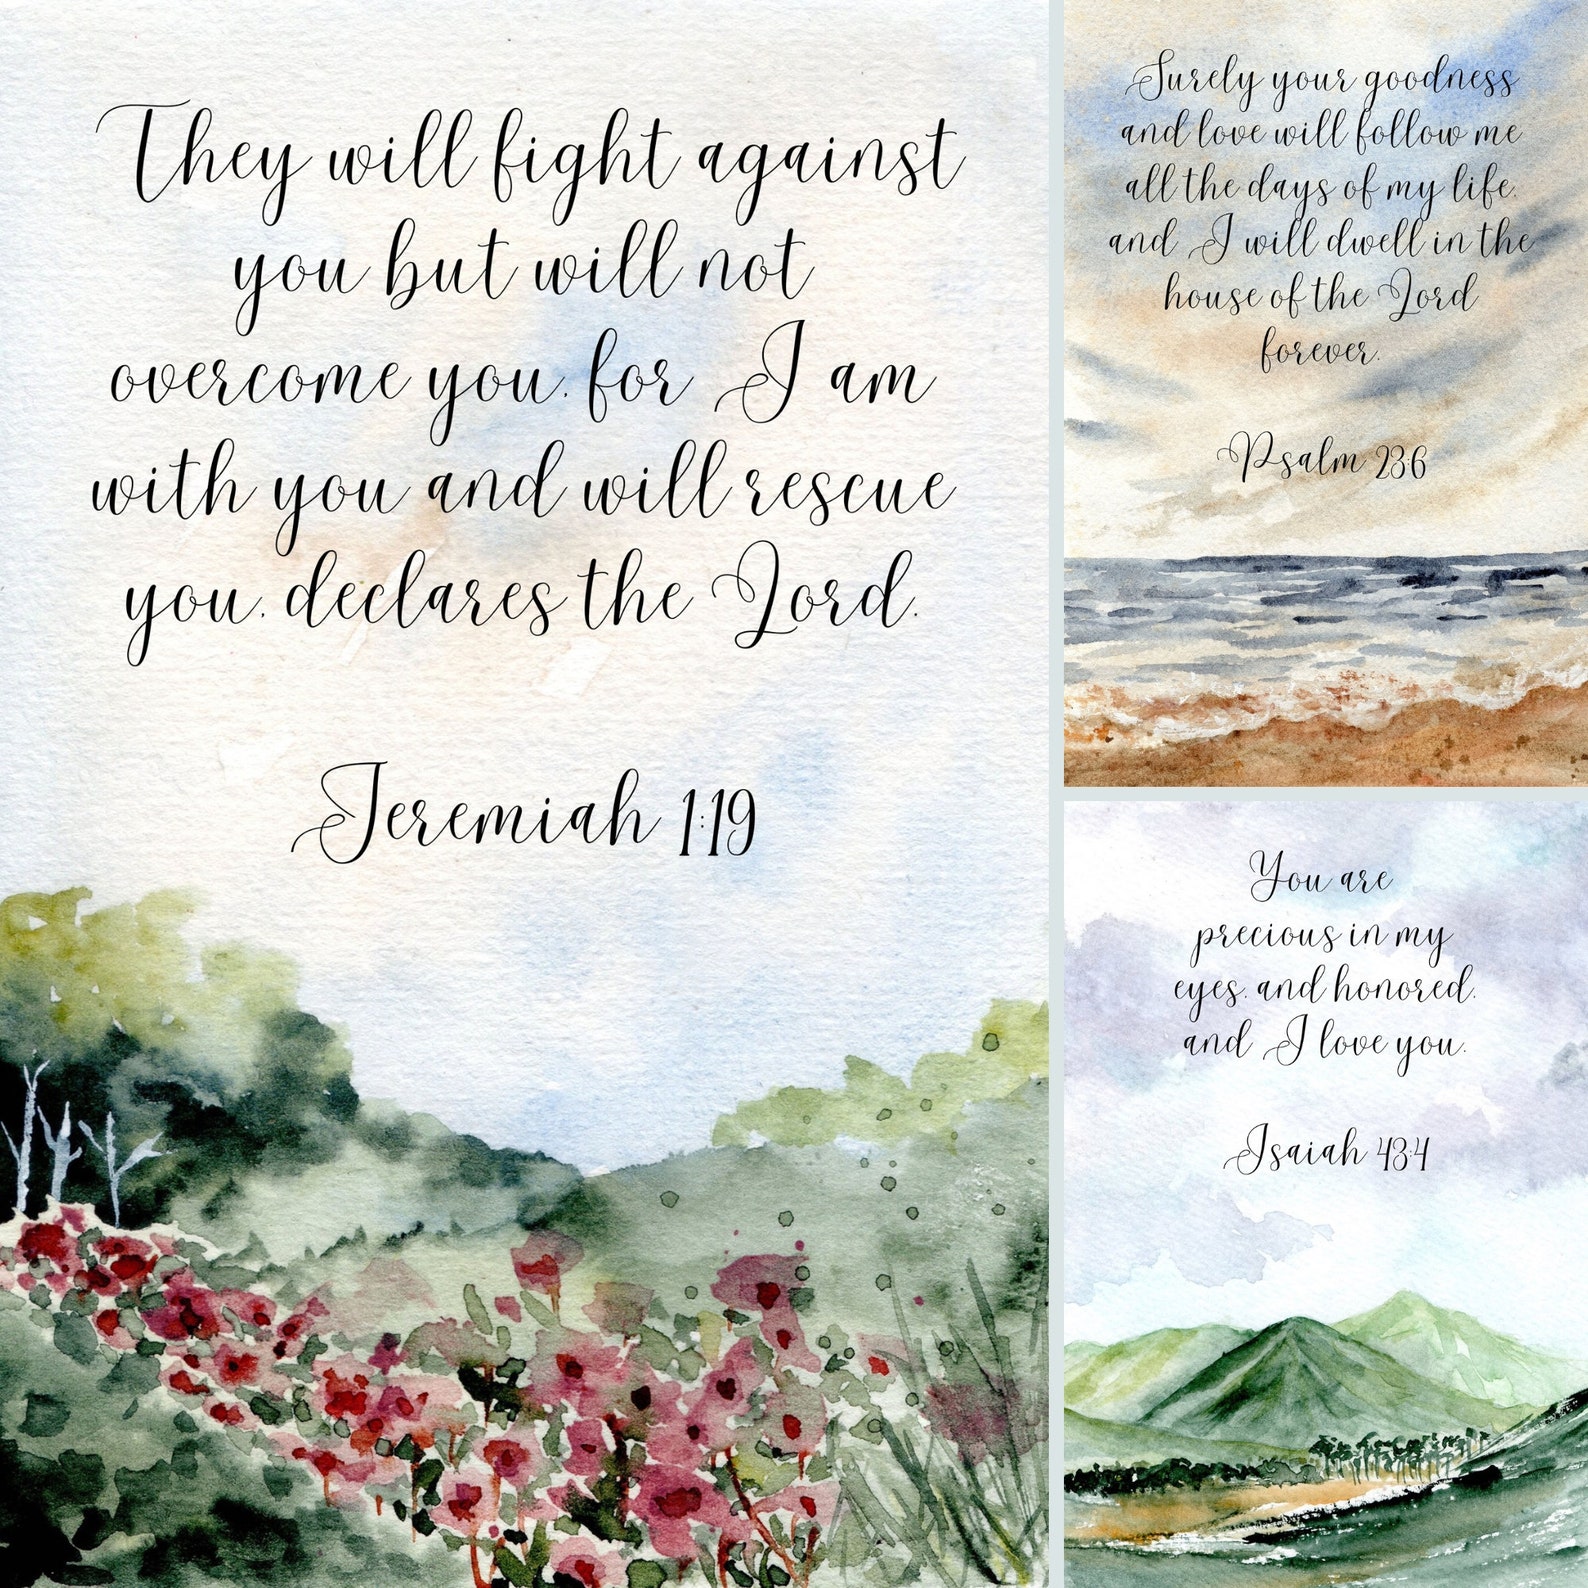 They will fight against
you but will not
overcome you, for I am
with you and will rescue
you, declares the Lord.
Jeremiah 1:19
Surely your goodness
and love will follow me
all the days of my life,
and I will dwell in the
house of the Lord
forever.
Psalm 23:6
You are
precious in my
eyes, and honored,
and I love you.
Isaiah 43:4